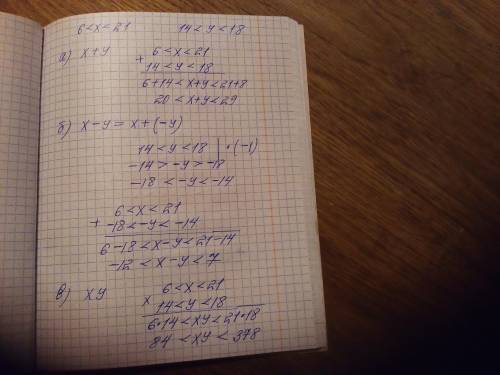 6<x<21 14<y<18
а) x+y
+ 6<x<21
14<y<18
6+14<x+y<21+8
20<x+y<29
б) x-y=x+(-y)
14<y<18 | •(-1)
-14>-y>-18
-18<-y<-14
+ 6<x<21
-18<-y<-14
6-18<x-y<21-14
-12<x-y<7
в) xy
× 6<x<21
14<y<18
6•14<xy<21•18
84<xy<378